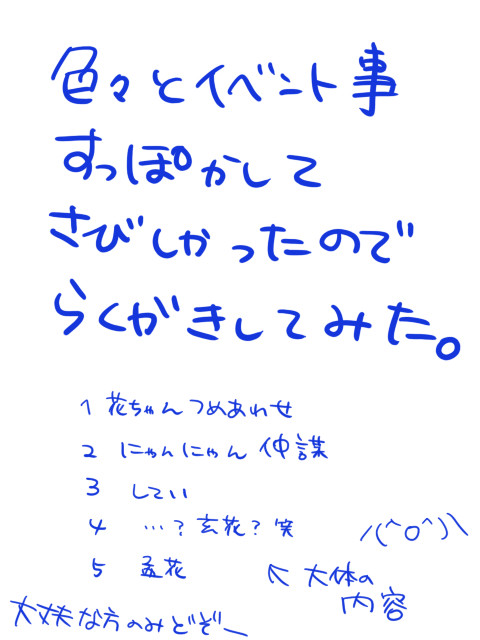 色々とイベント事
すっぽかして
さびしかったので
らくがきしてみた。
1 花ちゃんつめあわせ
2 にゃんにゃん仲謀
3 してい
4 …?玄花?笑
5 孟花
\(^o^)/
↖ 大体の
内容
大丈夫な方のみどぞー